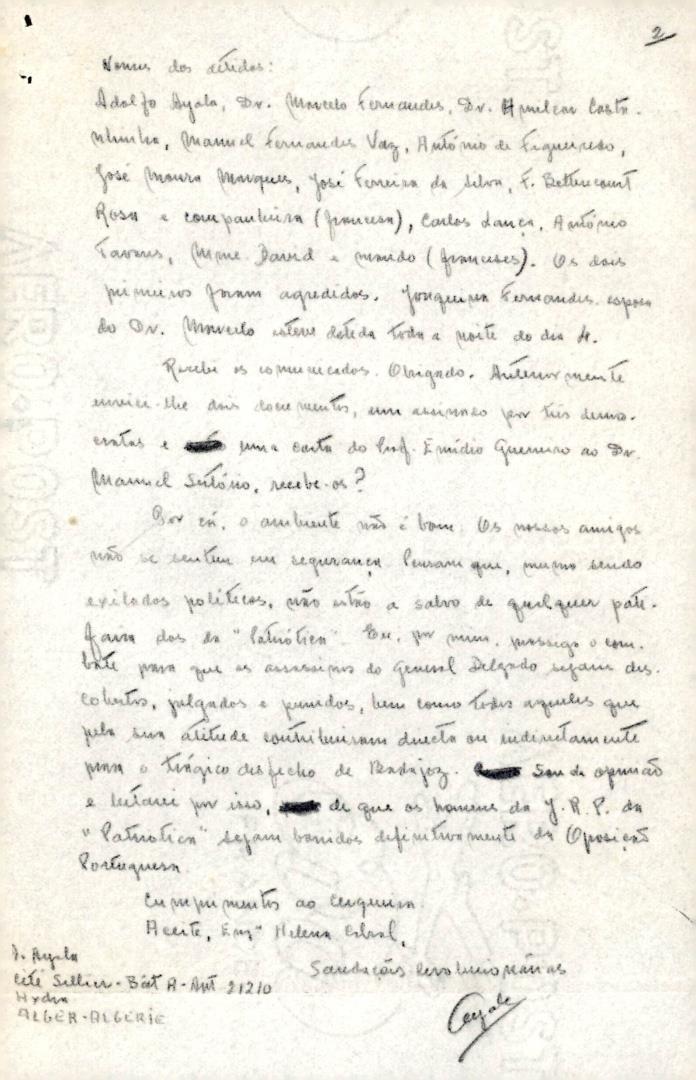 2
Nomes dos detidos:
Adolfo Ayala, Dr. Marcelo Fernandes, Dr. Amilcar Casta-
nhinha, Manuel Fernandes Vaz, António de Figueiredo,
José Moura Marques, José Ferreira da Silva, F. Bettencourt
Rosa e companheira (francesa), Carlos Lança, António
Tavares, Mme David e marido (franceses). Os dois
primeiros foram agredidos. Joaquina Fernandes esposa
do Dr. Marcelo esteve detida toda a noite do dia 4.
Recebi os comunicados. Obrigado. Anteriormente
enviei-lhe dois documentos, um assinado por três demo-
cratas e uma carta do Prof. Emídio Guerreiro ao Dr.
Manuel Sertório, recebe-os?
Por cá, o ambiente não é bom. Os nossos amigos
não se sentem em segurança. Pensam que, mesmo sendo
exilados políticos, não estão a salvo de qualquer pati-
faria dos da "Patriótica". Eu, por mim, prossigo o com-
bate para que os assassinos do General Delgado sejam des-
cobertos, julgados e punidos, bem como todos aqueles que
pela sua atitude contribuiram directa ou indirectamente
para o trágico desfecho de Badajoz. Sou de opinião
e lutarei por isso, de que os homens da J.R.P. da
"Patriótica" sejam banidos definitivamente da Oposição
Portuguesa.
Cumprimentos ao Cerqueira.
Aceite, Exmª Helena Cabral,
Saudações Revolucionárias
A. Ayala
Cité Sellier - Bât A - Apt 21210
Hydra
ALGER-ALGERIE
AERO-POST